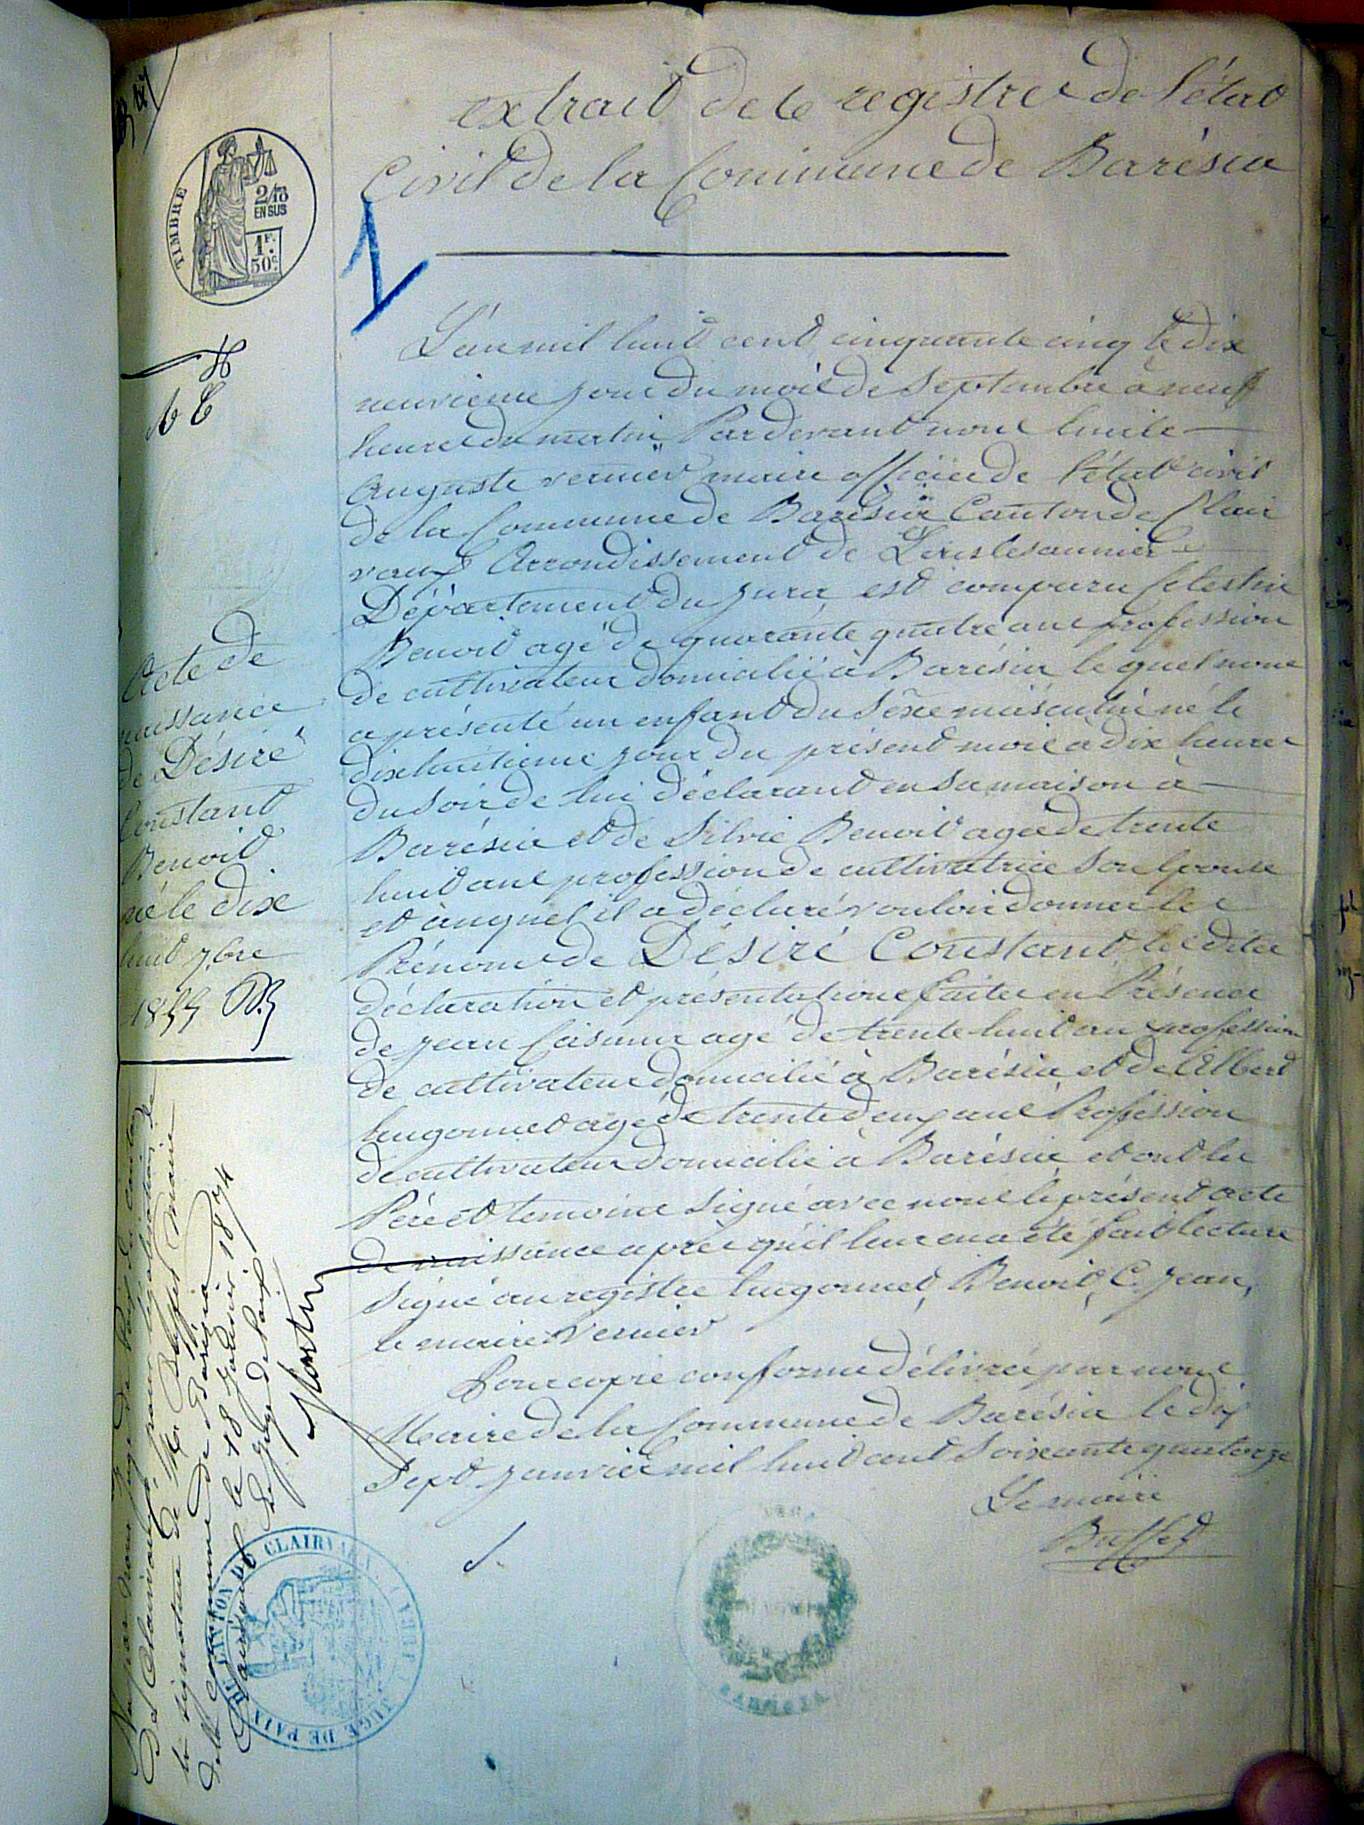 extrait de le registre de l'état
Civil de la Commune de Barésia
TIMBRE
2/10
EN SUS
1F.
50c.
1
L'an mil huit cent cinquante cinq le dix
neuvieme jour du mois de Septembre à neuf
heures du matin Pardevant nous
Auguste vernier maire officier de l'état civil
de la Commune de Barésia Canton de Clair
vaux Arrondissement de Lons le saunier
Département du jura est comparu Celestin
Benoit agé de quarante quatre ans profession
de cultivateur domicilié à Barésia le quel nous
a présenté un enfant du Sêxe masculin né le
dixhuitieme jour du présent mois à dix heures
du Soir de lui déclarant en sa maison à
Barésia et de Silvie Benoit agée de trente
huit ans profession de cultivatrice Son épouse
et auquel il a déclaré vouloir donner les
Prénoms de Désiré Constant les dites
déclaration et présentations faites en Présence
de jean Casimir agé de trente huit ans profession
de cultivateur domicilié à Barésia et de Albert
hugonnet agé de trente deux ans Profession
de cultivateur domicilié à Barésia et ont les
Père et temoins Signé avec nous le présent acte
de naissance après qu'il leur en a été fait lecture
Signé au registre hugonnet, Benoit, C. jean,
le maire Vernier
Pour copie conforme délivrée par nous
Maire de la Commune de Barésia le dix
Sept janvier mil huit cent Soixante quatorze
Le maire
Buffet
Acte de
naissance
de Désiré
Constant
Benoit
né le dix
huit 7bre
1855
Vu par nous juge de Paix du canton
de Clairvaux pour légalisation de
la signature de Mr Buffet Maire
de la Commune de Barézia
Clairvaux le 18 Janvier 1874
Le Juge de Paix
JUGE DE PAIX DU CANTON DE CLAIRVAUX